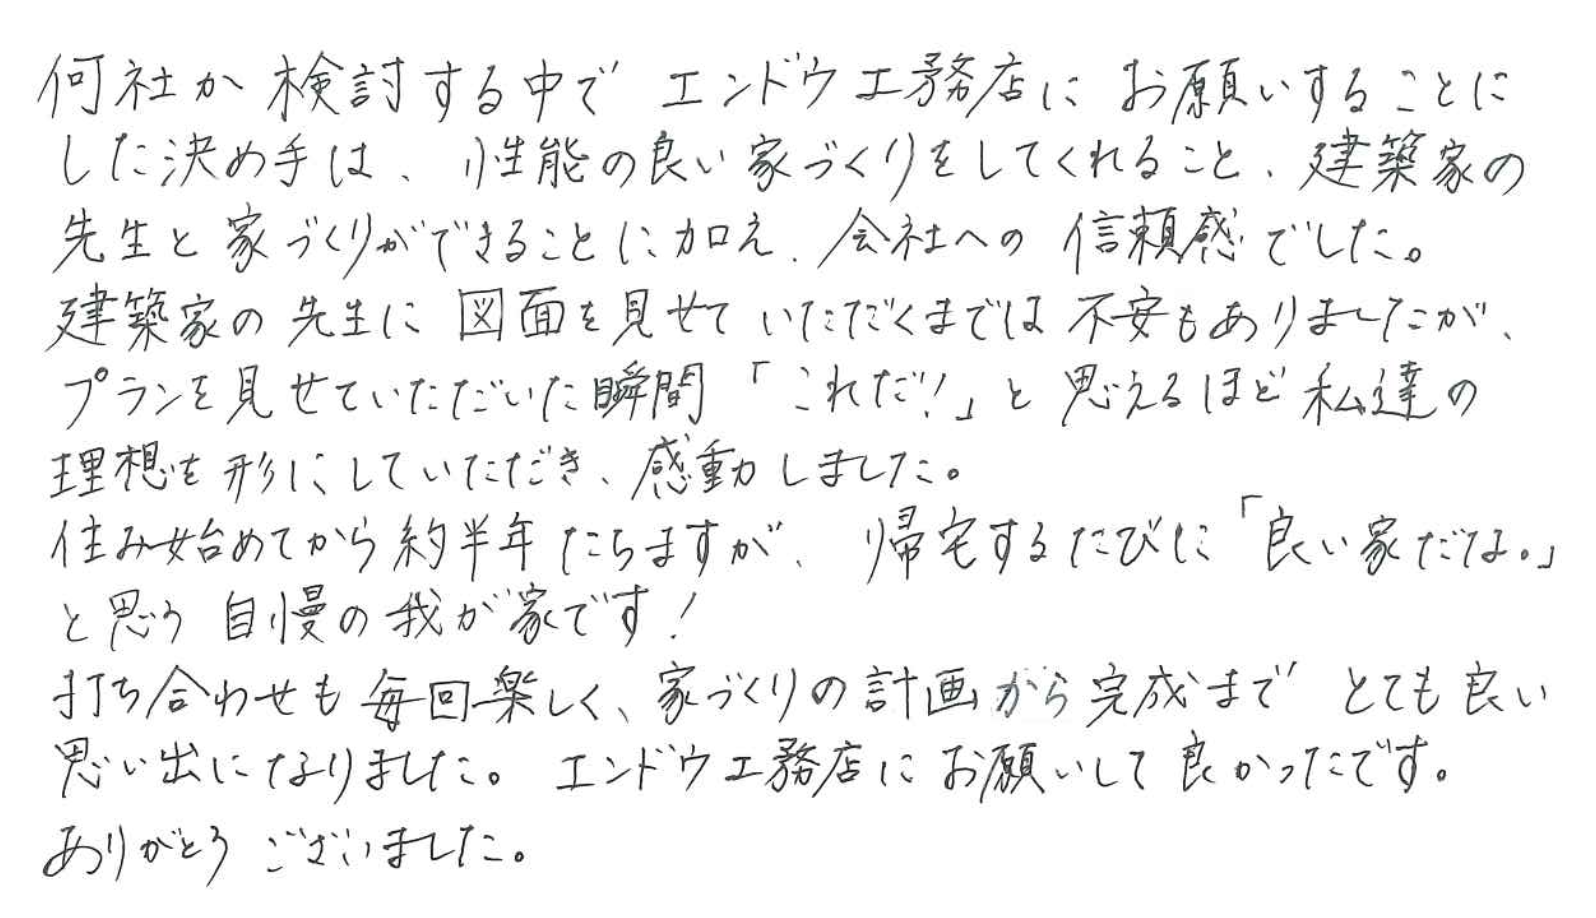 何社か検討する中で エンドウ工務店に お願いすることに
した決め手は、性能の良い家づくりをしてくれること、建築家の
先生と家づくりができることに加え、会社への信頼感でした。
建築家の先生に図面を見せていただくまでは不安もありましたが、
プランを見せていただいた瞬間「これだ!」と思えるほど私達の
理想を形にしていただき、感動しました。
住み始めてから約半年たちますが、帰宅するたびに「良い家だな。」
と思う自慢の我が家です!
打ち合わせも毎回楽しく、家づくりの計画から完成まで とても良い
思い出になりました。エンドウ工務店にお願いして良かったです。
ありがとうございました。